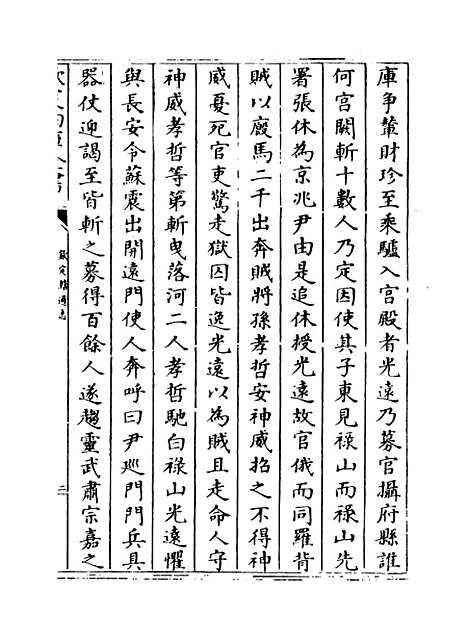 庫爭輦財珍至乘驢入宮殿者光遠乃募官攝府縣誰
何宮闕斬十數人乃定因使其子東見祿山而祿山先
署張休為京兆尹由是追休授光遠故官俄而同羅背
賊以廄馬二千出奔賊將孫孝哲安神威招之不得神
威憂死官吏驚走獄囚皆逸光遠以為賊且走命人守
神威孝哲等第斬曵落河二人孝哲馳白祿山光遠懼
與長安令蘇震出開遠門使人奔呼曰尹廵門門兵具
器仗迎謁至皆斬之募得百餘人遂趨靈武肅宗嘉之
欽定續通志